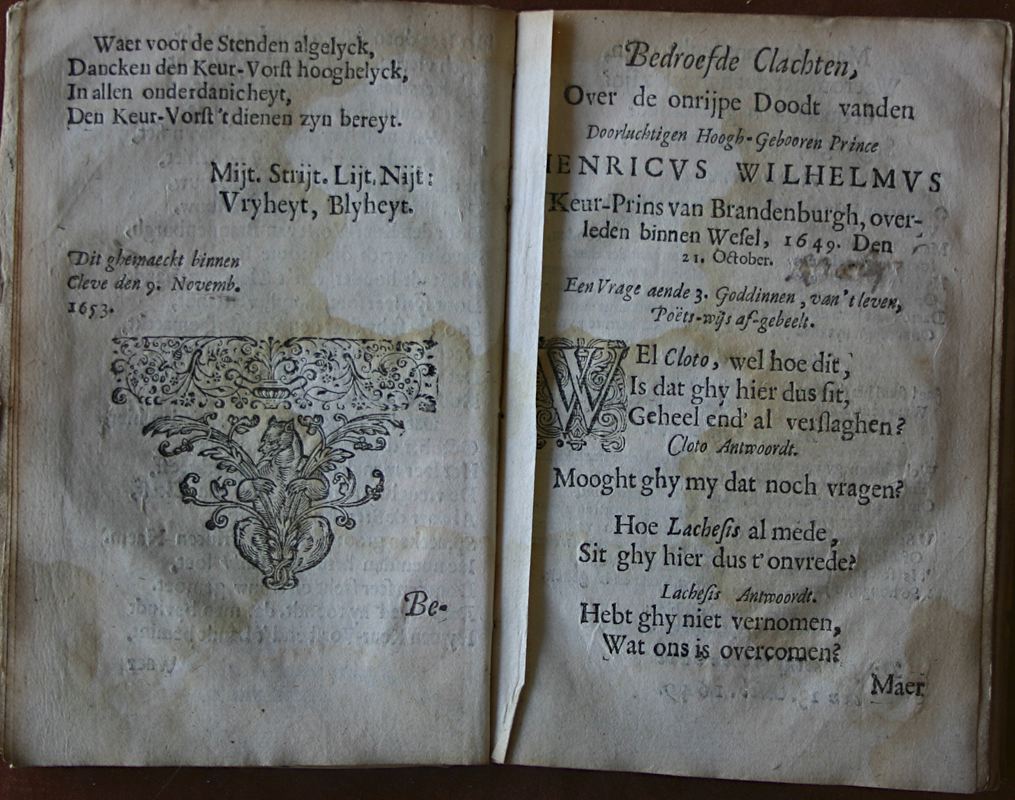 Waer voor de Stenden algelyck,
Dancken den Keur-Vorſt hooghelyck,
In allen onderdanicheyt,
Den Keur-Vorſt 't dienen zyn bereyt.
Mijt. Strijt. Lijt. Nijt:
Vryheyt, Blyheyt.
Dit ghemaeckt binnen
Cleve den 9. Novemb.
1653.
Be-
Bedroefde Clachten,
Over de onrijpe Doodt vanden
Doorluchtigen Hoogh-Gebooren Prince
HENRICVS WILHELMVS
Keur-Prins van Brandenburgh, over-
leden binnen Weſel, 1649. Den
21. October.
Een Vrage aende 3. Goddinnen, van 't leven,
Poëts-wijs af-gebeelt.
WEl Cloto, wel hoe dit,
Is dat ghy hier dus ſit,
Geheel end' al verſlaghen?
Cloto Antwoordt.
Mooght ghy my dat noch vragen?
Hoe Lacheſis al mede,
Sit ghy hier dus t'onvrede?
Lacheſis Antwoordt.
Hebt ghy niet vernomen,
Wat ons is overcomen?
Maer